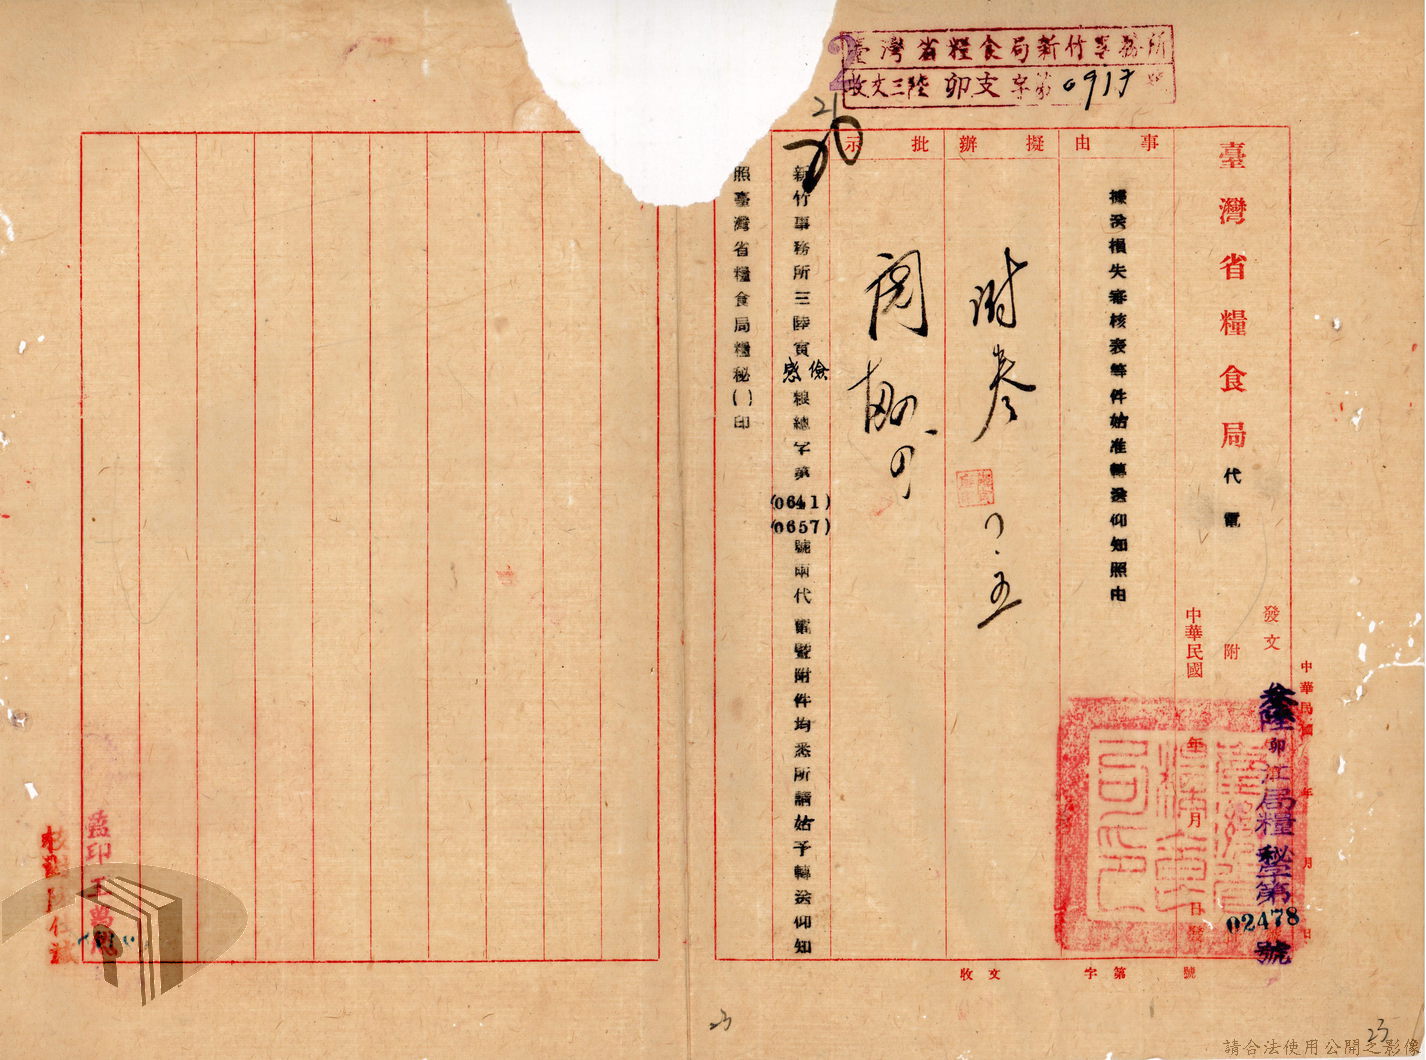 臺灣省糧食局新竹事務所
收文三陸卯支字第0917號
臺灣省糧食局代電
發文
附
中華民國
年
月
日發
參陸卯江局糧秘字第
02478
號
中華民國
年
月
日
事由
擬辦
批示
據送損失審核表等件姑准轉送仰知照由
附卷
閱
新竹事務所三陸寅
儉
感
糧總字第
(0641)
(0657)
號兩代電暨附件均悉所請姑予轉送仰知
照臺灣省糧食局糧秘()印
收文
字第
號
監印王
校對
23
23
請合法使用公開之影像